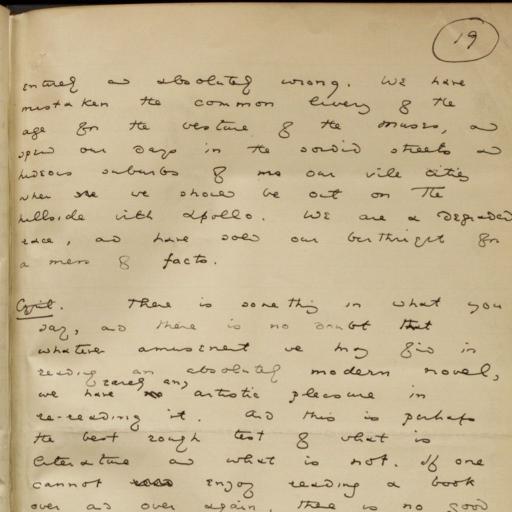 19
entirely and absolutely wrong. We have
mistaken the common livery of the
age for the vesture of the Muses, and
spend our days in the sordid streets and
hideous suburbs of our vile cities
when we should be out on the
hillside with Apollo. We are a degraded
race, and have sold our birthright for
a mess of facts.
Cyril. There is something in what you
say, and there is no doubt that
whatever amusement we may find in
reading an absolutely modern novel,
we have rarely any artistic pleasure in
re-reading it. And this is perhaps
the best rough test of what is
literature and what is not. If one
cannot enjoy reading a book
over and over again, there is no good